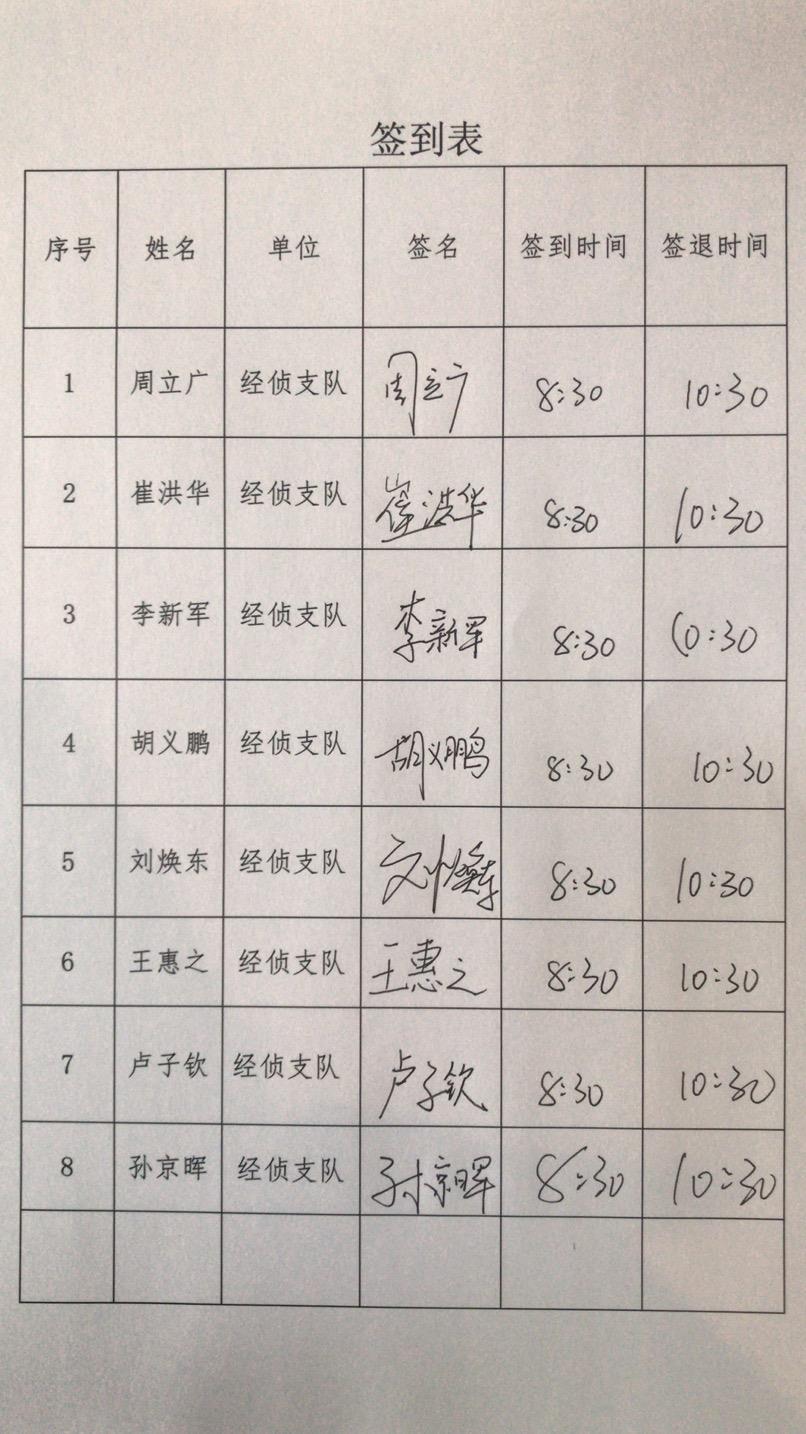 签到表
序号 姓名 单位 签名 签到时间 签退时间
1 周立广 经侦支队 周立广 8:30 10:30
2 崔洪华 经侦支队 崔洪华 8:30 10:30
3 李新军 经侦支队 李新军 8:30 10:30
4 胡义鹏 经侦支队 胡义鹏 8:30 10:30
5 刘焕东 经侦支队 刘焕东 8:30 10:30
6 王惠之 经侦支队 王惠之 8:30 10:30
7 卢子钦 经侦支队 卢子钦 8:30 10:30
8 孙京晖 经侦支队 孙京晖 8:30 10:30